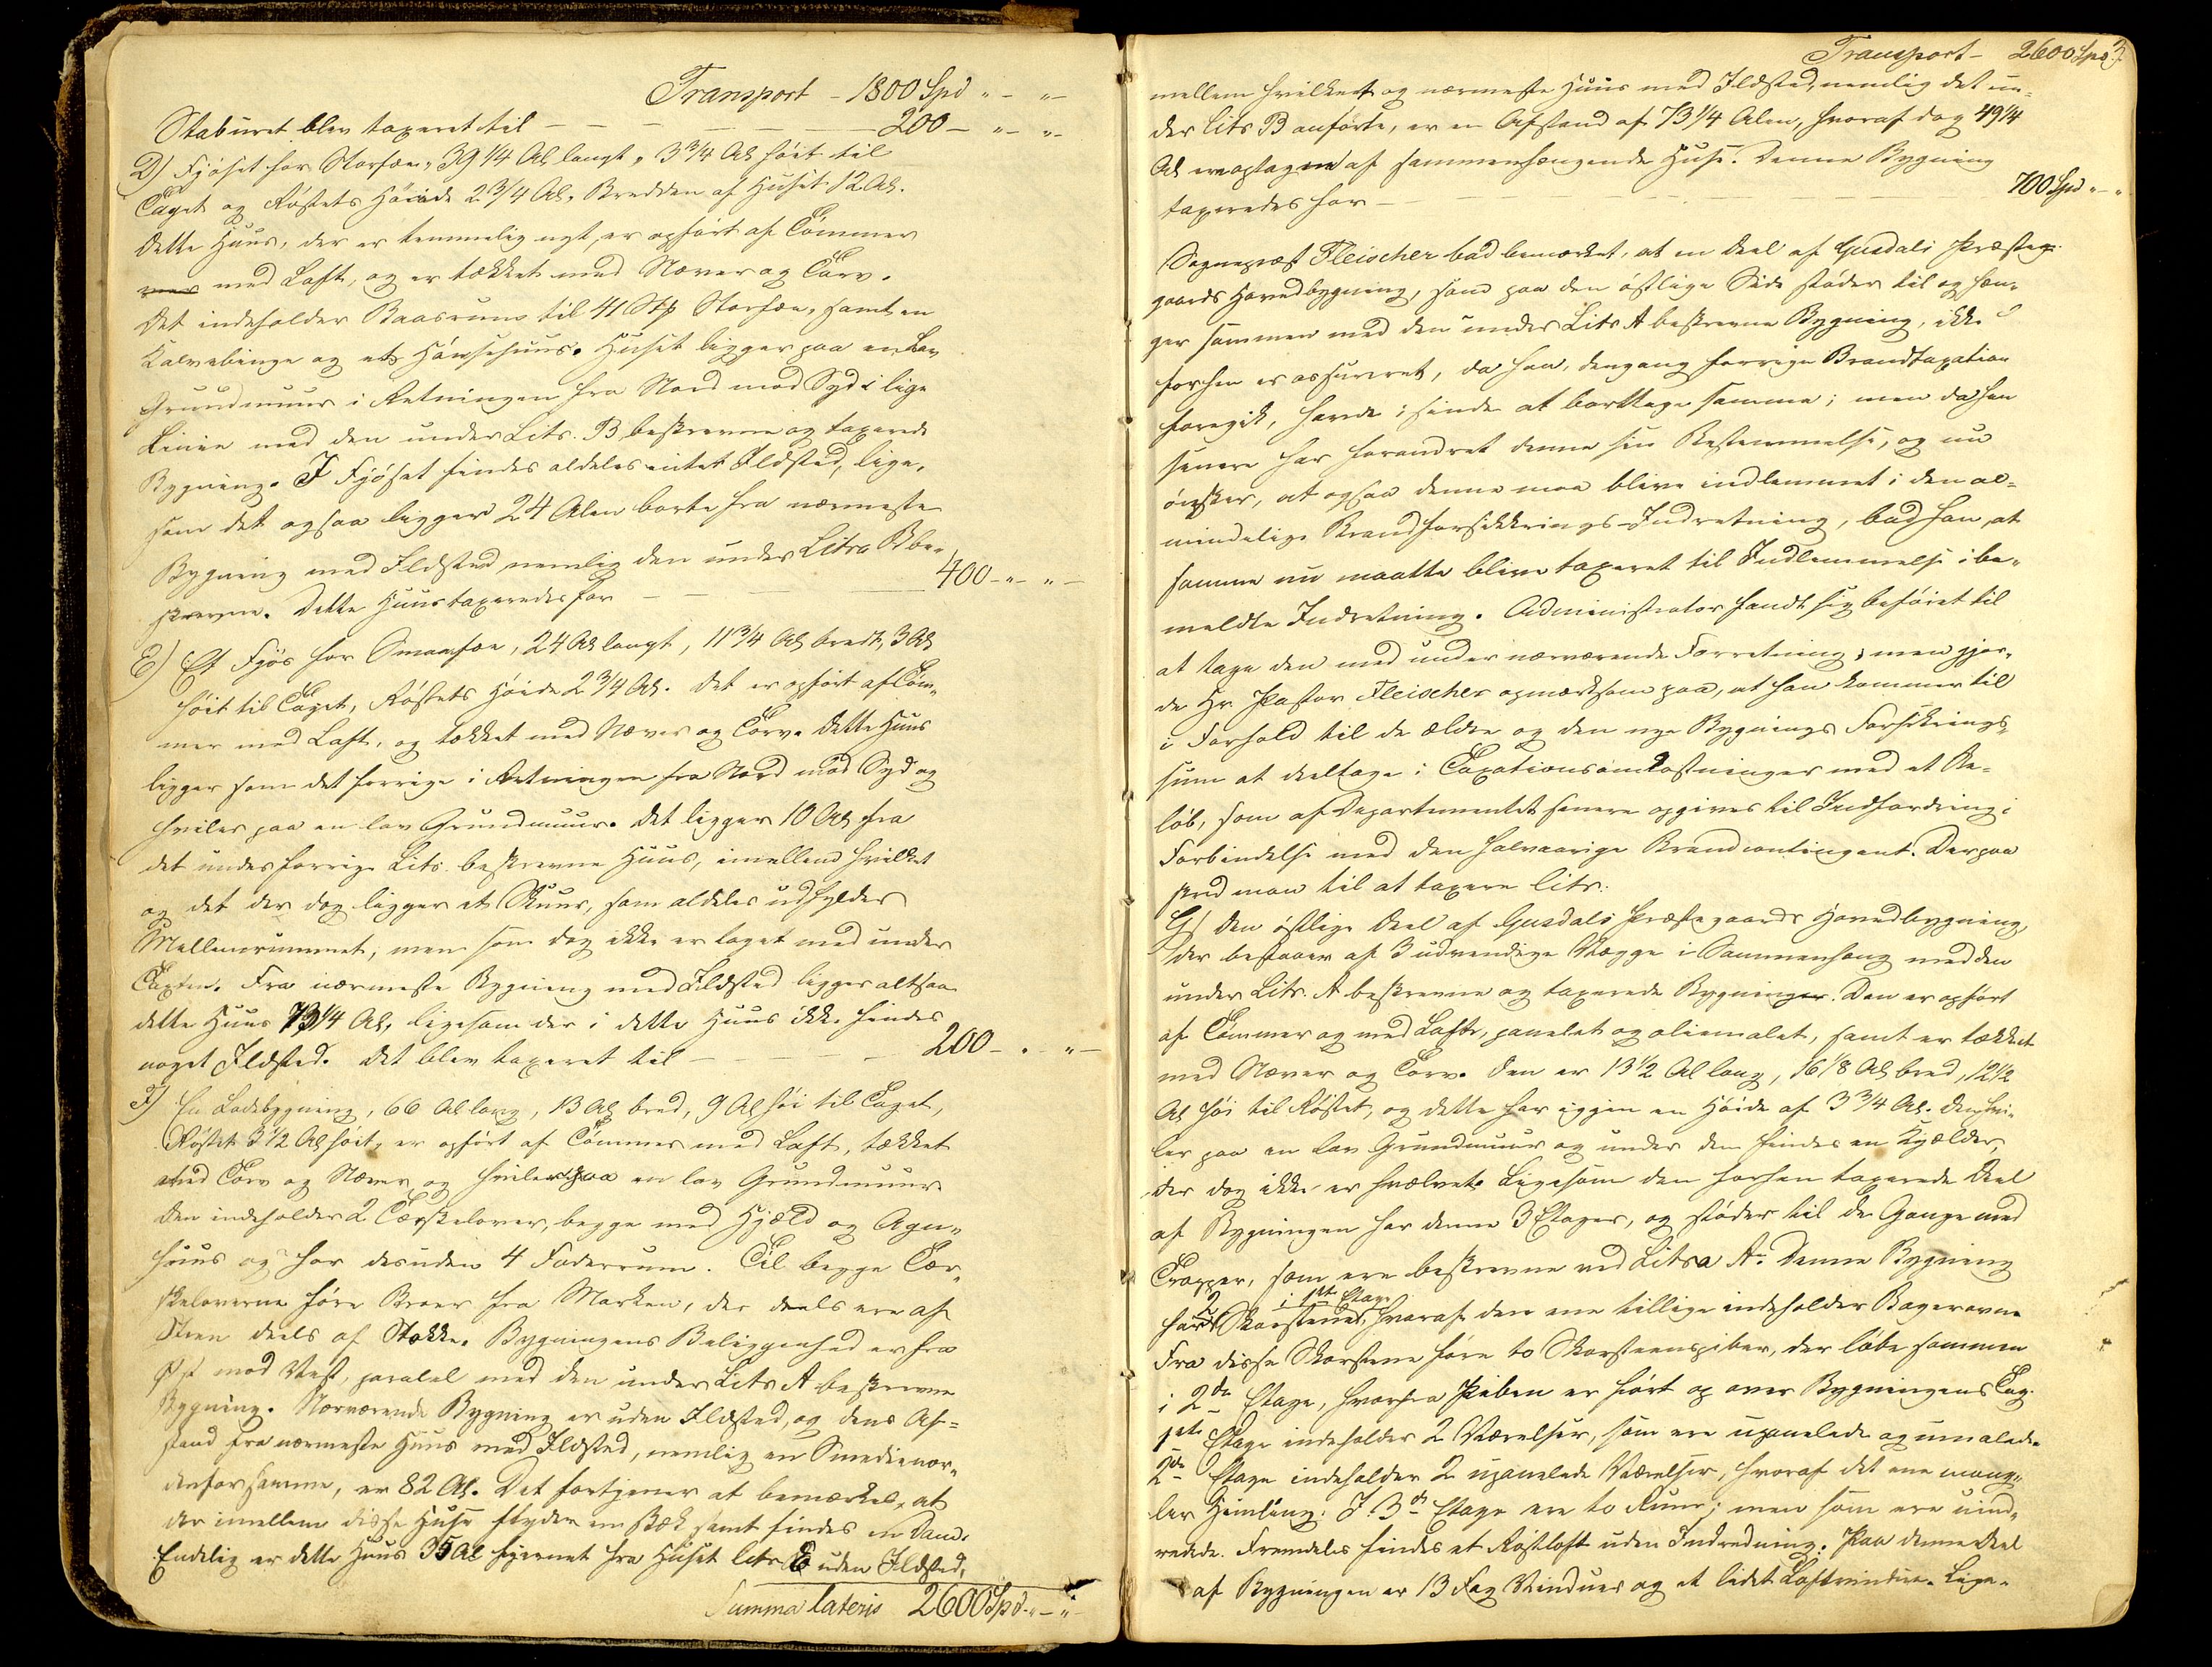 Transport - 1800 Spd " - " -
Staburet blev taxeret til - - - - - - 200 - " - " -
D) Fjöset for Storfæe, 39 1/4 Al. langt, 3 3/4 Al. höit til
Taget og Röstets Höide 2 3/4 Al., Bredden af Huset 12 Al.
Dette Huus, der er temmelig nyt, er opfört af Tömmer
med Loft, og er tækket med Næver og Törv.
Det indeholder Baasrum til 41 Stk Storfæe, samt en
Kalvebinge og et Hönsehuus. Huset ligger paa en lav
Grundmuur i Retningen fra Nord mod Syd i lige
Linie med den under Litr. B beskrevne og taxerede
Bygning. I Fjöset findes aldeles intet Ildsted, lige-
som det ogsaa ligger 24 Alen borte fra nærmeste
Bygning med Ildsted nemlig den under Litra B be-
skrevne. Dette Huus taxeredes for - - - 400 - " - " -
E) Et Fjös for Smaafæe, 24 Al. langt, 11 3/4 Al. bredt, 3 Al.
höit til Taget, Röstets Höide 2 3/4 Al. Det er opfört af Töm-
mer med Loft, og tækket med Næver og Törv. Dette Huus
ligger som det forrige i Retningen fra Nord mod Syd og
hviler paa en lav Grundmuur. Det ligger 10 Al. fra
det under forrige Litr. beskrevne Huus, imellem hvilket
og det der dog ligger et Skuur, som aldeles udfylder
Mellemrummet, men som dog ikke er taget med under
Taxten. Fra nærmeste Bygning med Ildsted ligger altsaa
dette Huus 73 1/4 Al., ligesom der i dette Huus ikke findes
noget Ildsted. Det blev taxeret til - - - - 200 - " - " -
F) En Ladebygning, 66 Al. lang, 13 Al. bred, 9 Al. höi til Taget,
Röstet 3 1/2 Al. höit, er opfört af Tömmer med Loft, tækket
med Törv og Næver og hviler paa en lav Grundmuur.
Den indeholder 2 Tærskelover, begge med Hjæld og Agne-
huus og har desuden 4 Foderrum. Til begge Tær-
skeloverne före Broer fra Marken, der deels ere af
Steen deels af Stokke. Bygningens Beliggenhed er fra
Öst mod Vest, paralel med den under Litr. A beskrevne
Bygning. Nærværende Bygning er uden Ildsted, og dens Af-
stand fra nærmeste Huus med Ildsted, nemlig en Smedie nor-
denfor samme, er 82 Al. Det fortjener at bemærkes, at
der imellem disse Huse flyder en Bæk samt findes en Dam.
Endelig er dette Huus 35 Al. fjernet fra Huset litr. E uden Ildsted,
Summa lateris 2600 Spd. " - " -
Transport - 2600 Spd.
mellem hvilket og nærmeste Huus med Ildsted, nemlig det un-
der Litr. B anförte, er en Afstand af 73 1/4 Alen, hvoraf dog 49 1/4
Al. ere optagne af sammenhængende Huse. Denne Bygning
taxeredes for - - - - - - 700 Spd " - "
Sognepræst Fleischer bad bemærket, at en Deel af Gusdals Præste-
gaards Hovedbygning, som paa den östlige Side stöder til og hæn-
ger sammen med den under Litr. A beskrevne Bygning, ikke
forhen er assureret, da han, dengang forrige Brandtaxation
foregik, havde isinde at borttage samme; men da han
senere har forandret denne sin Bestemmelse, og nu
önsker, at ogsaa denne maa blive indlemmet i den al-
mindelige Brandforsikkrings-Indretning, bad han, at
samme nu maatte blive taxeret til Indlemmelse i be-
meldte Indretning. Administrator fandt sig beföiet til
at tage den med under nærværende Forretning; men gjor-
de Hr. Pastor Fleischer opmærksom paa, at han kommer til
i Forhold til de ældre og den nye Bygnings Forsikrings-
sum at deeltage i Taxationsomkostninger med et Be-
löb, som af Departementet senere opgives til Indfordring i
Forbindelse med den halvaarige Brandcontingent. Derpaa
skred man til at taxere litr.
G) Den östlige Deel af Gusdals Præstegaards Hovedbygning,
der bestaaer af 3 udvendige Vægge i Sammenhang med den
under Litr. A beskrevne og taxerede Bygning. Den er opfört
af Tömmer og med Loft, panelet og oliemalet, samt er tækket
med Næver og Törv. Den er 13 1/2 Al. lang, 16 1/8 Al. bred, 12 1/2
Al. höi til Röstet, og dette har igjen en Höide af 3 3/4 Al. Den hvi-
ler paa en lav Grundmuur og under den findes en Kjælder,
der dog ikke er hvælvet. Ligesom den forhen taxerede Deel
af Bygningen har denne 3 Etager, og stöder til de Gange med
Trapper, som ere beskrevne ved Litra A. Denne Bygning
har 2 Skorstene i 1ste Etage, hvoraf den ene tillige indeholder Bagerovn.
Fra disse Skorstene före to Skorsteenspiber, der löbe sammen
i 2den Etage, hvorfra Piben er fört op over Bygningens Tag.
1ste Etage indeholder 2 Værelser, som ere upanelede og umalede.
2den Etage indeholder 2 upanelede Værelser, hvoraf det ene mang-
ler Himling. I 3die Etage ere to Rum; men som ere uind-
redede. Fremdeles findes et Röstloft uden Indredning. Paa denne Deel
af Bygningen er 13 Fag Vinduer og et lidet Loftvindue. Lige-